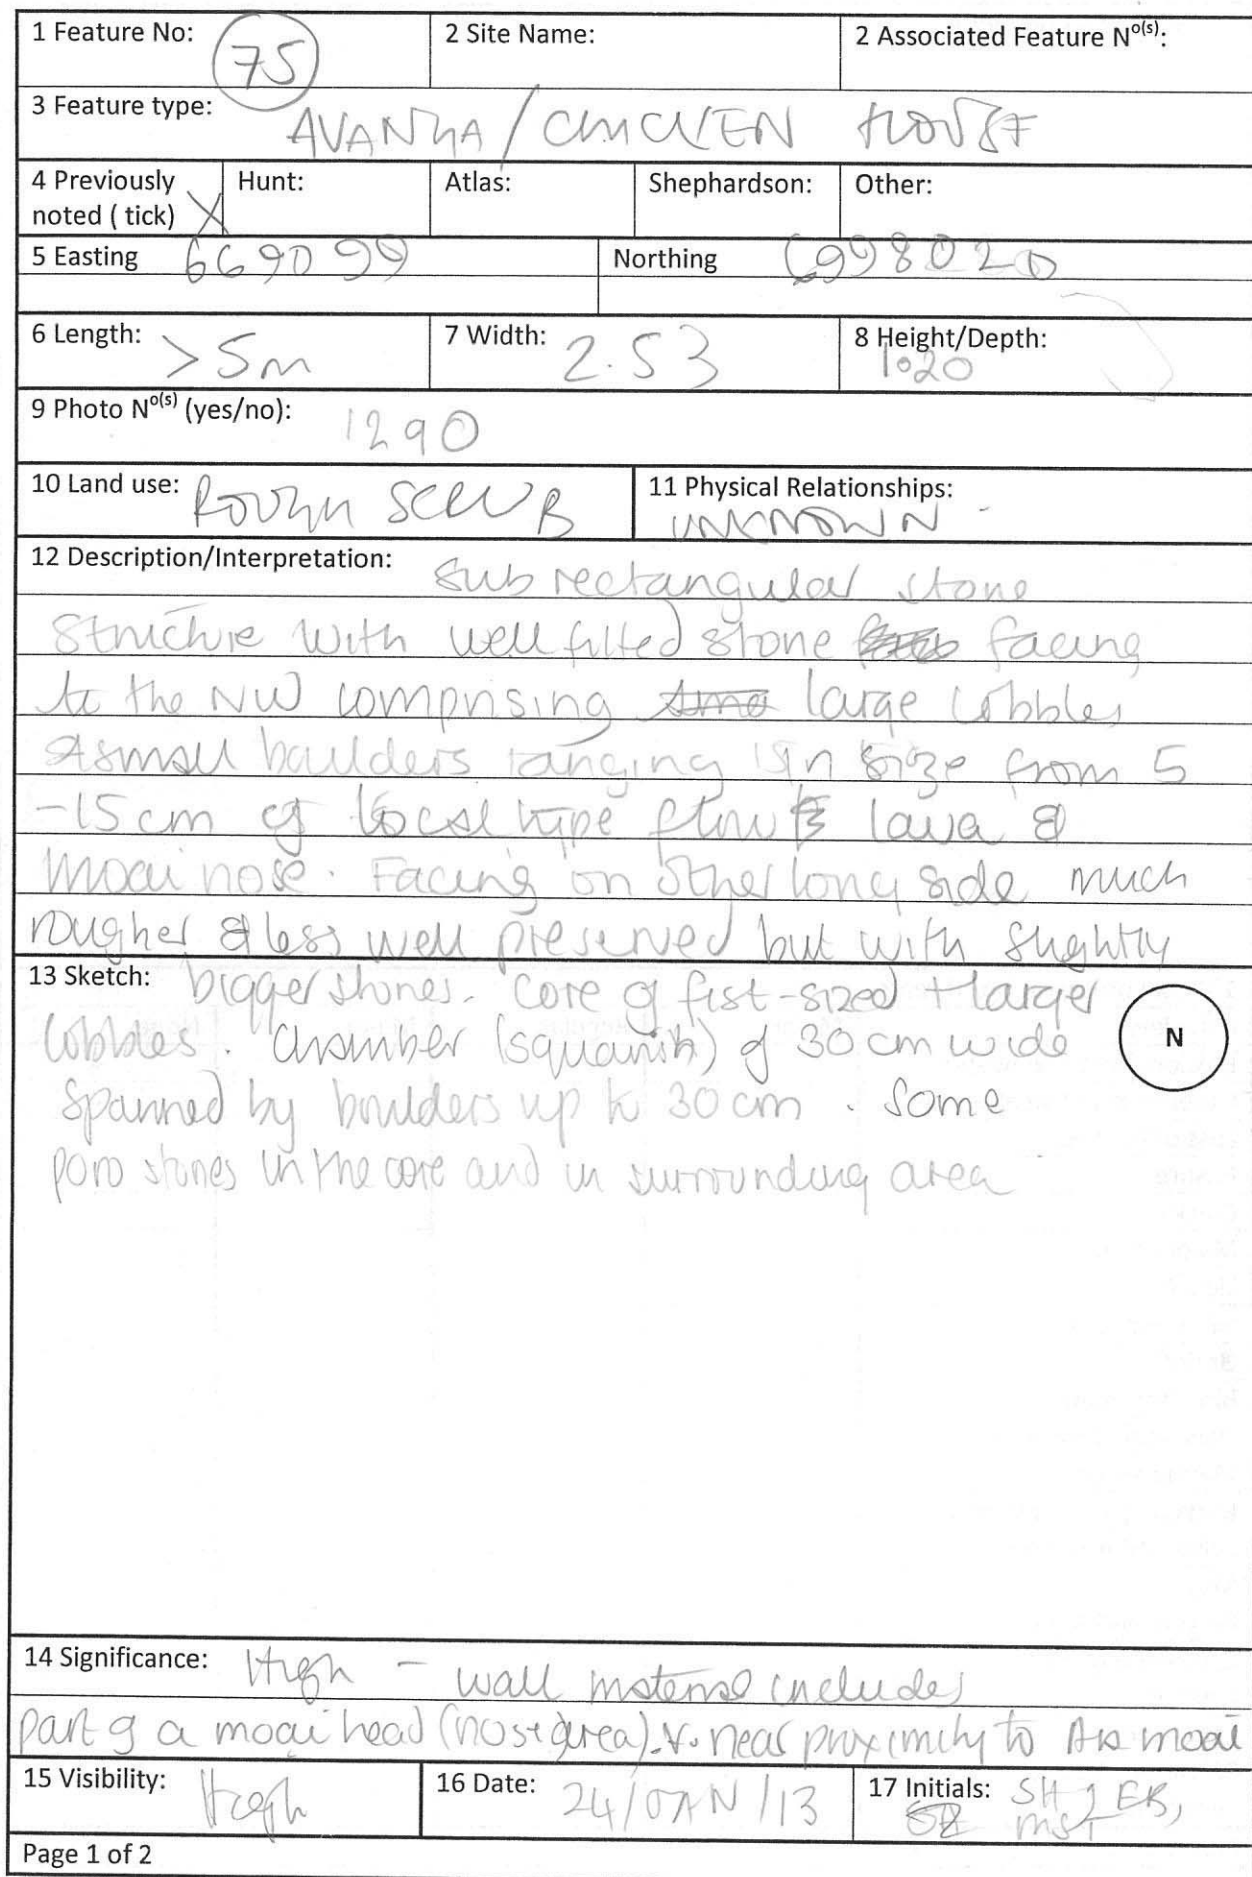 1 Feature No: 75 2 Site Name: 2 Associated Feature No(s):
3 Feature type: AVANGA / CHICKEN HOUSE
4 Previously noted ( tick) X Hunt: Atlas: Shephardson: Other:
5 Easting 669099 Northing 6998020
6 Length: >5m 7 Width: 2.53 8 Height/Depth: 1.20
9 Photo No(s) (yes/no): 1290
10 Land use: ROUGH SCRUB 11 Physical Relationships: UNKNOWN
12 Description/Interpretation: Sub rectangular stone
Structure with well fitted stone facing
to the NW comprising large cobbles
& small boulders ranging in size from 5
-15cm of local type flow lava &
moai nose. Facing on other long side much
rougher & less well preserved but with slightly
13 Sketch: bigger stones. Core of fist-sized + larger
cobbles. Chamber (squarish) of 30cm wide
N
spanned by boulders up to 30cm. Some
poro stones in the core and in surrounding area
14 Significance: High - wall material includes
part of a moai head (nose area). & near proximity to moai
15 Visibility: High 16 Date: 24/JAN/13 17 Initials: SH, EB,
Page 1 of 2